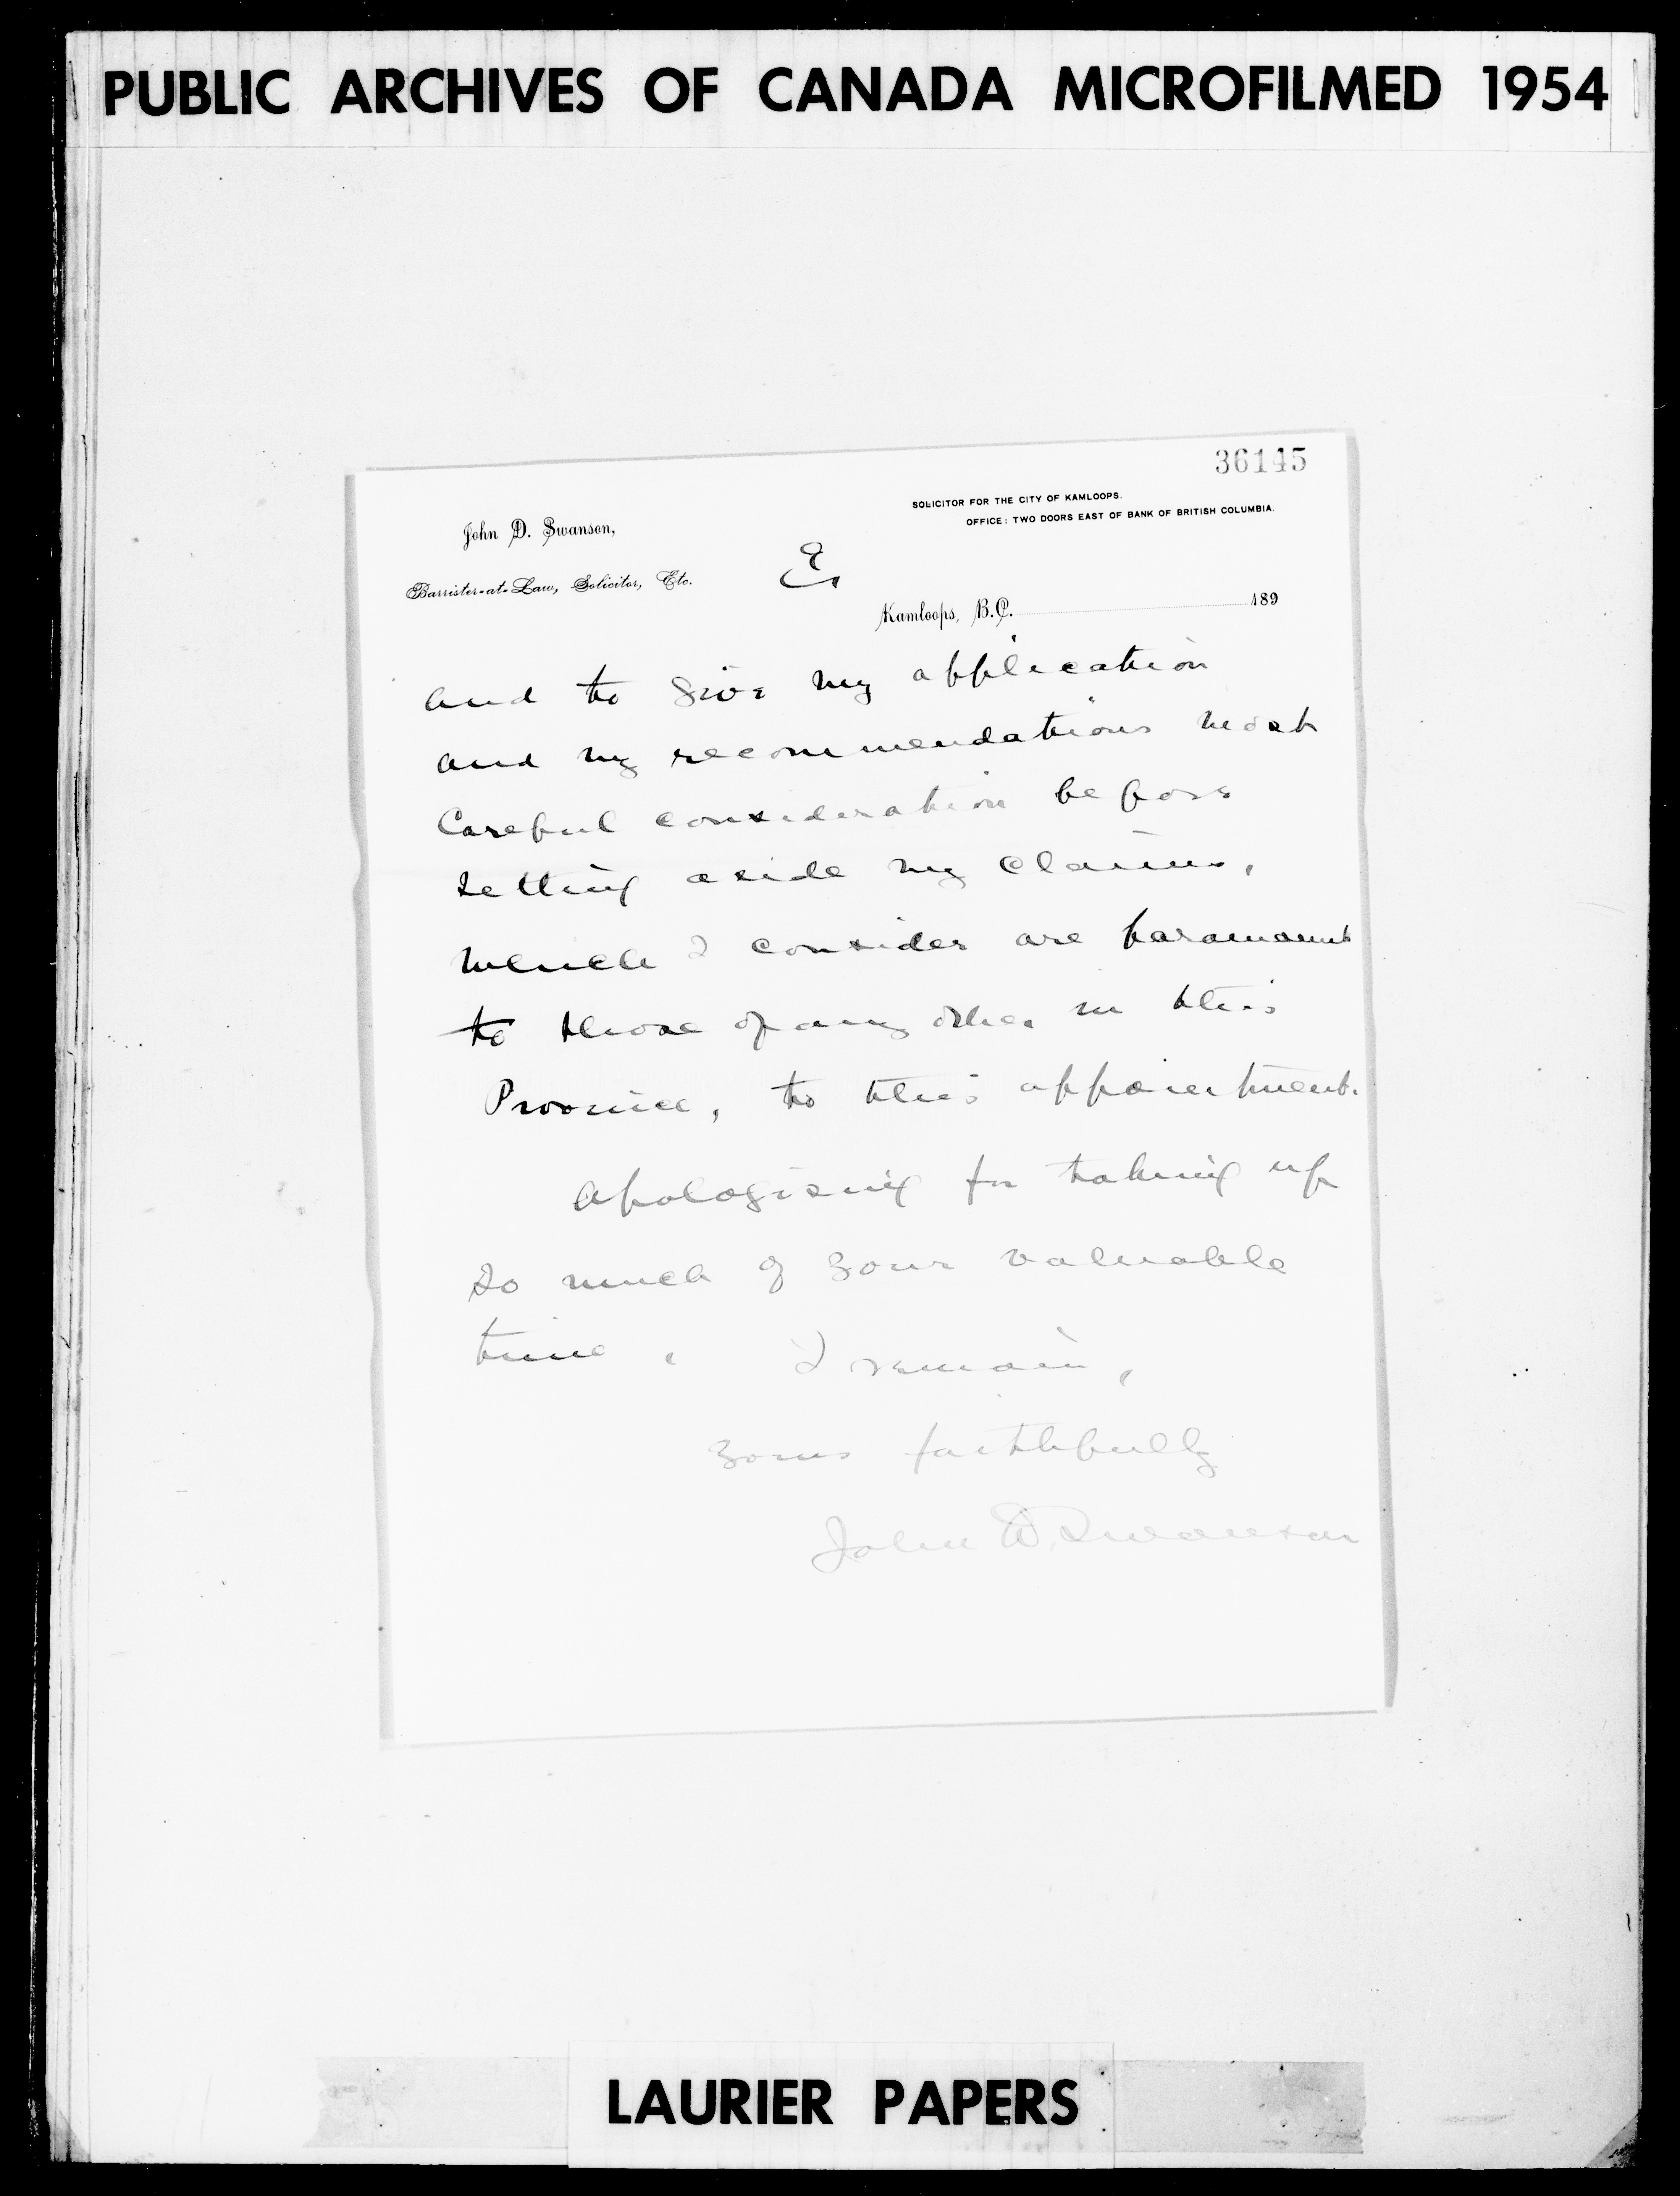 PUBLIC ARCHIVES OF CANADA MICROFILMED 1954
36145
SOLICITOR FOR THE CITY OF KAMLOOPS.
OFFICE: TWO DOORS EAST OF BANK OF BRITISH COLUMBIA.
John D. Swanson,
Barrister-at-Law, Solicitor, Etc.
Kamloops, B.C. 189
and to give my application
and my recommendations most
careful consideration before
setting aside my claims,
which I consider are paramount
to those of any other in this
Province, to this appointment.
Apologising for taking up
so much of your valuable
time, I remain,
Yours faithfully
John D. Swanson
LAURIER PAPERS